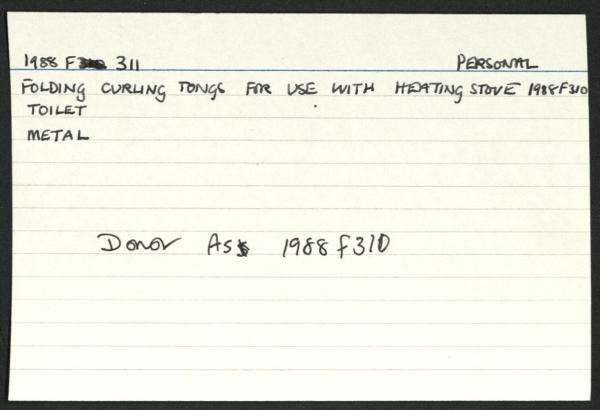 1988 F 311 PERSONAL
FOLDING CURLING TONGS FOR USE WITH HEATING STOVE 1988F310
TOILET
METAL
Donor As 1988 F310